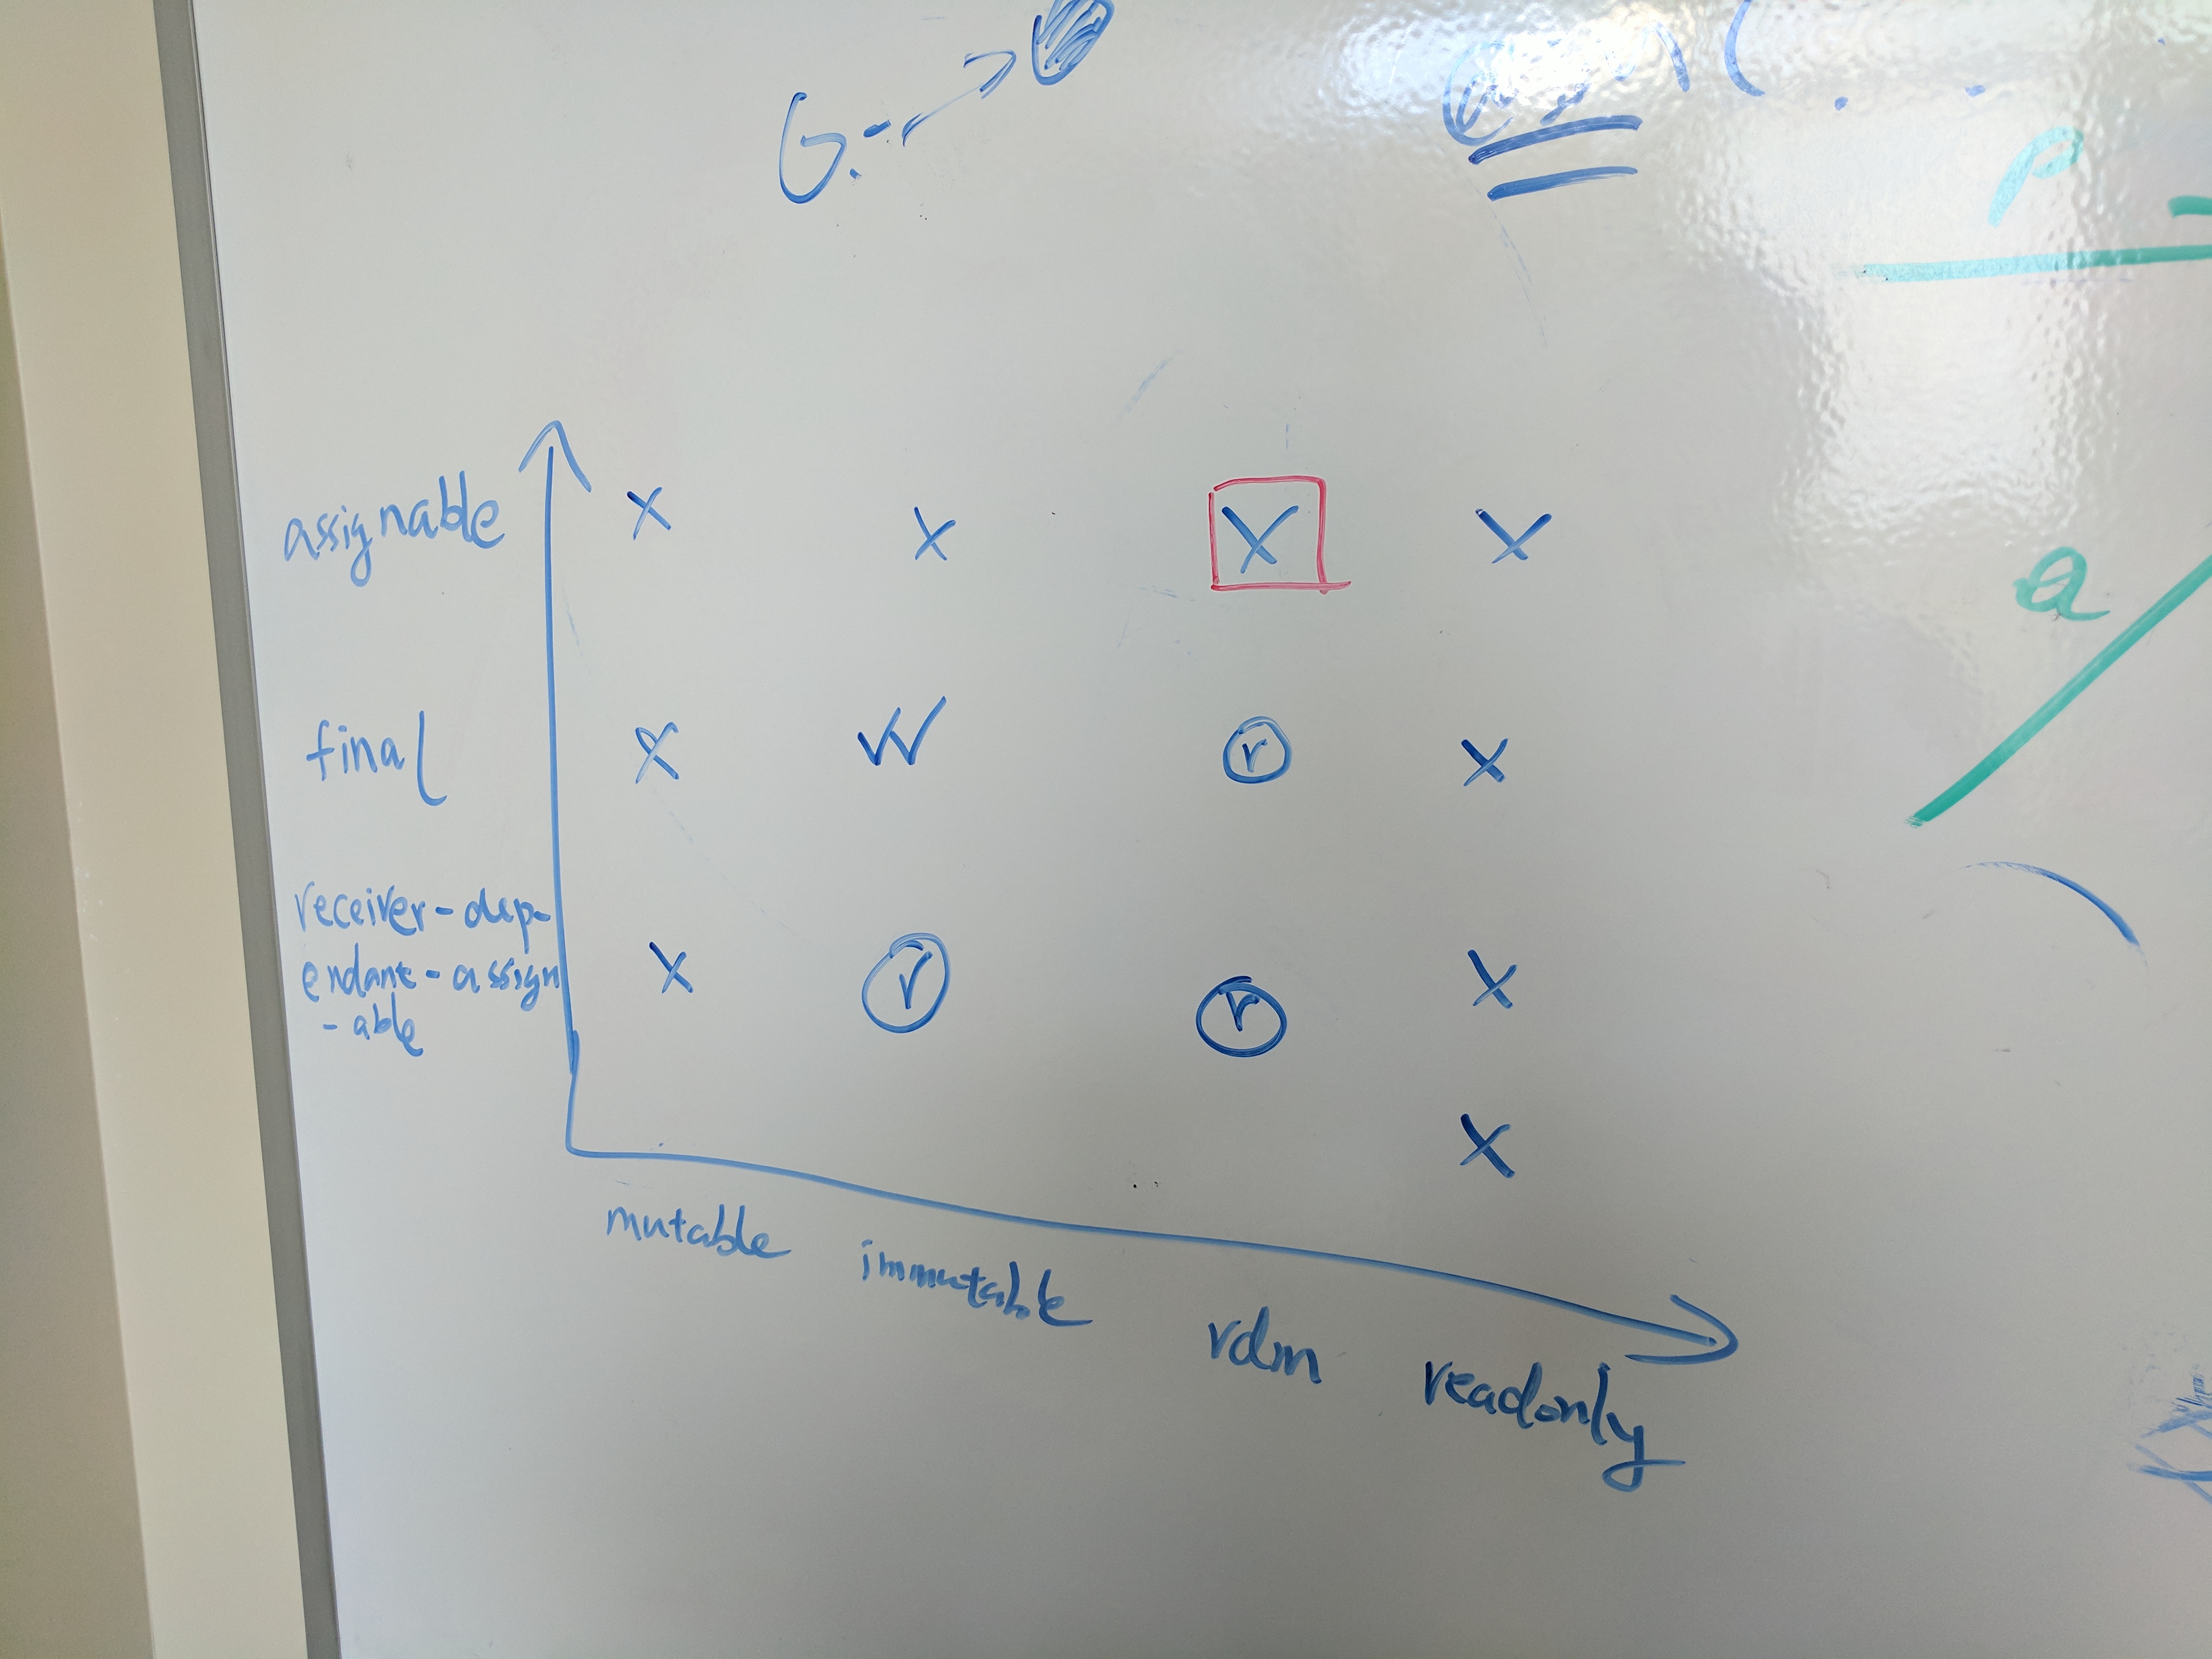 P
assignable X X X X
a
final X W r X
receiver-dep-
endant-assign X r r X
-able
X
mutable immutable rdm readonly